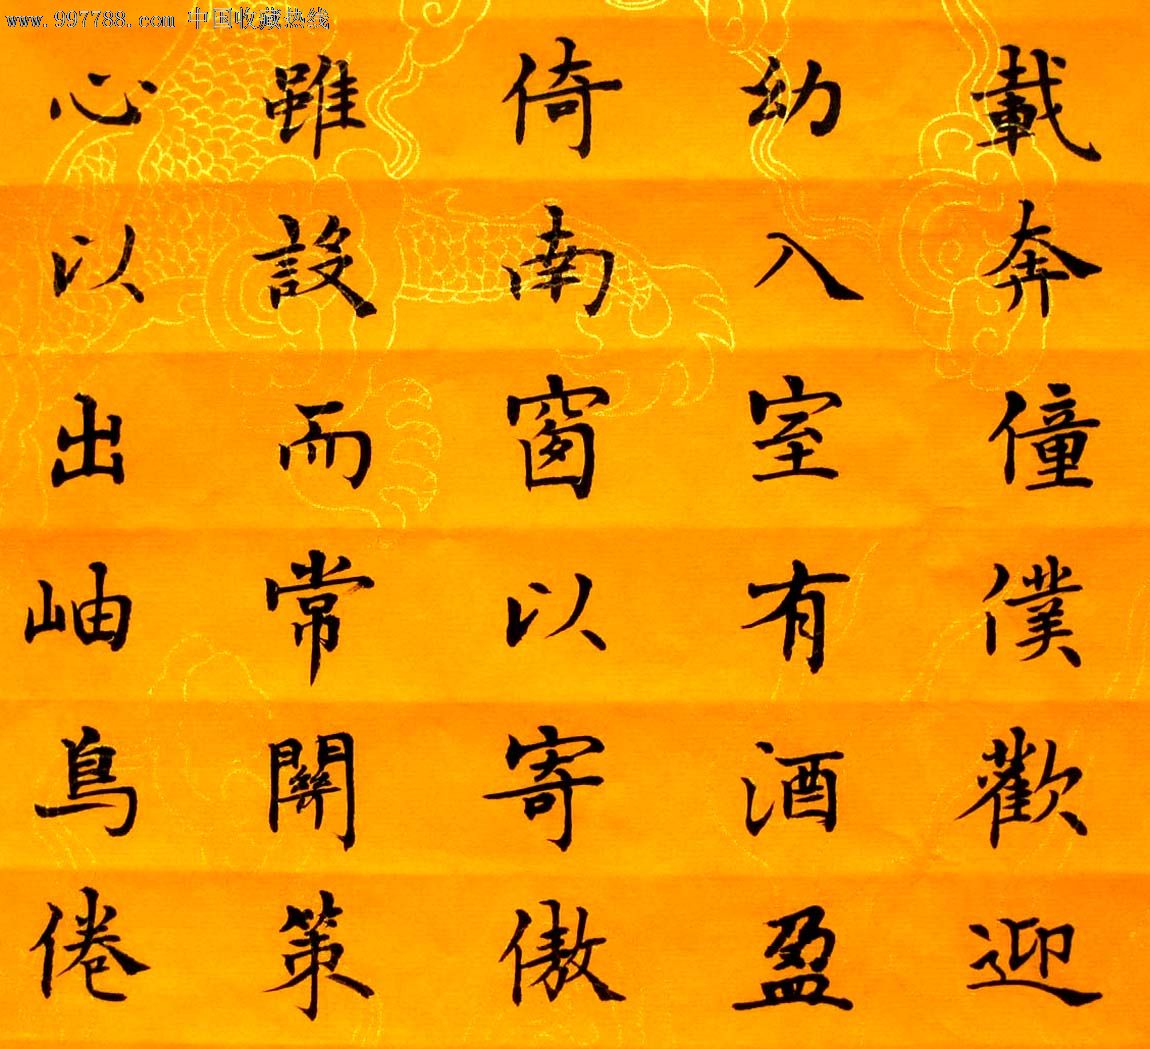 www.997788.com 中国收藏热线
載奔僮僕歡迎
幼入室有酒盈
倚南窗以寄傲
雖設而常關策
心以出岫鳥倦